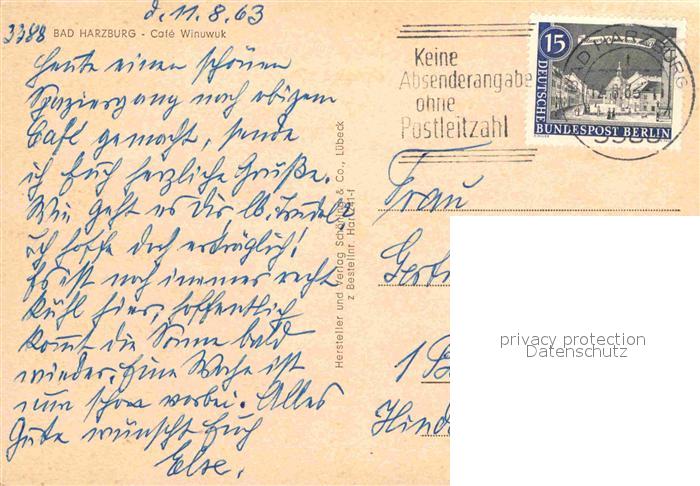 d. 11.8.63
3388 BAD HARZBURG - Café Winuwuk
Heute einen schönen
Spaziergang nach obigem
Café gemacht, sende
ich Euch herzliche Grüße.
Wie geht es Dir, lb. Trudel?
ich hoffe doch erträglich!
Es ist noch immer recht
kühl hier, hoffentlich
kommt die Sonne bald
wieder. Eine Woche ist
nun schon vorbei. Alles
Gute wünscht Euch
Else.
Hersteller und Verlag Schöning & Co., Lübeck
z Bestellnr. Har
Keine
Absenderangabe
ohne
Postleitzahl
15
DEUTSCHE
BUNDESPOST BERLIN
BAD HARZBURG
Frau
1
privacy protection
Datenschutz